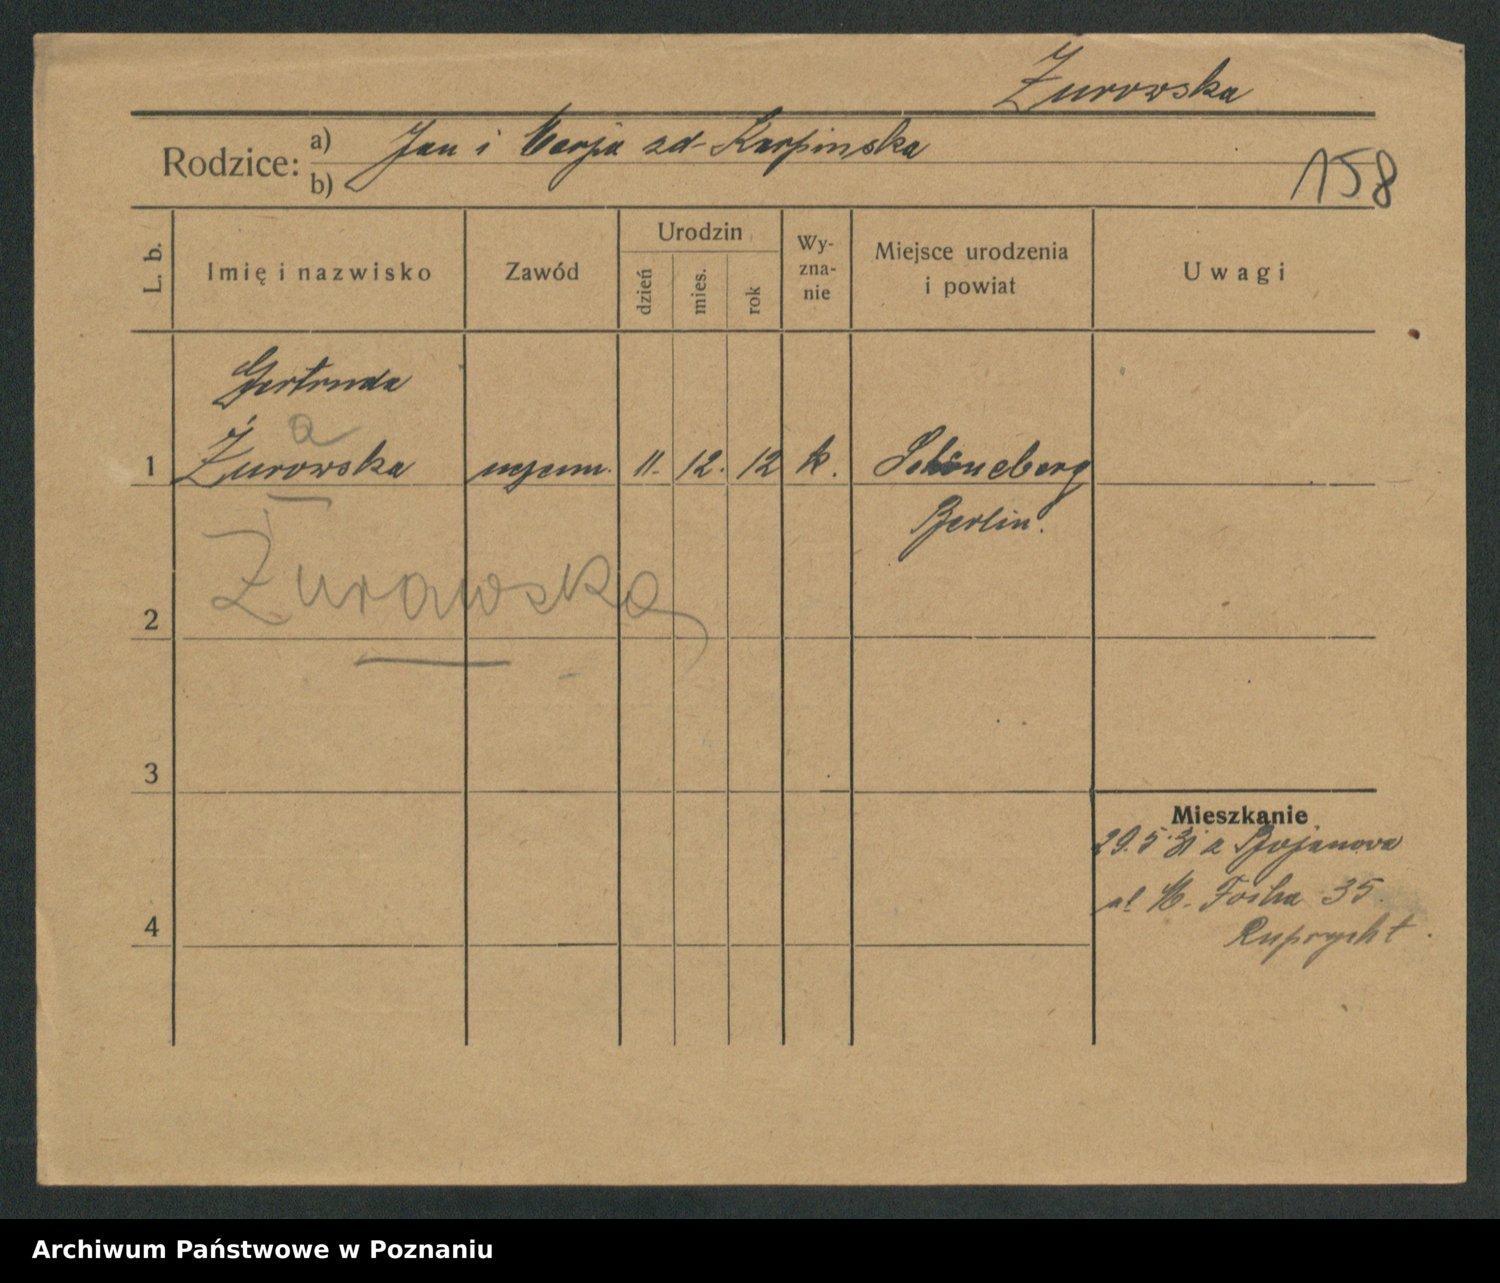 Żurowska
Rodzice: a) Jan i Marja zd Karpinska
b)
158
L. b.
Imię i nazwisko
Zawód
Urodzin
dzień
mies.
rok
Wy-
zna-
nie
Miejsce urodzenia
i powiat
Uwagi
Gertruda
a
1 Żurowska 11. 12. 12 k. Schöneberg
Berlin.
Żurawska
2
3
4
Mieszkanie
29.5.31 z Bojanowa
ul M. Focha 35
Ruprycht.
Archiwum Państwowe w Poznaniu